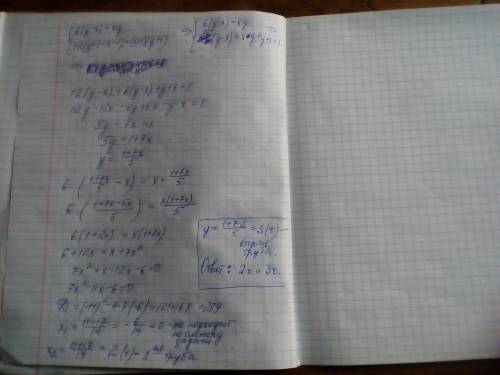 { 6(y-x)=xy ⇒ { 6(y-x)=xy
12(y+1-x-1)=(x+1)(y+1) (y-x)=x·y+y+x+1
⇒
12(y-x)=6(y-x)+y+x+1
12y-12x-6y+6x-y-x=1
5y-7x=1
5y=1+7x
y=\frac{1+7x}{5}
6(\frac{1+7x}{5}-x)=x·\frac{1+7x}{5}
6(\frac{1+7x-5x}{5})=\frac{x(1+7x)}{5}
6(1+2x)=x(1+7x)
6+12x=x+7x²
7x²+x-12x-6=0
7x²-11x-6=0
D=(-11)²-4·7·(-6)=121+168=289
x₁=\frac{11-17}{14}=-\frac{6}{14}<0 - не подходит по смыслу задачи
x₂=\frac{11+17}{14}=2(ч)-1ая труба
y=\frac{1+7·2}{5}=3(ч)-
вторая
труба.
Ответ: 2ч и 3ч.